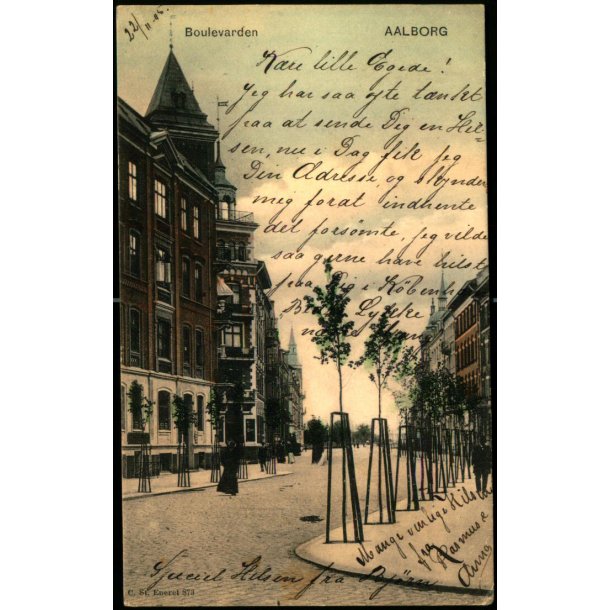 22/11.05.
Boulevarden AALBORG
Kære lille Egede!
Jeg har saa ofte tænkt
paa at sende Dig en Hil-
sen, nu i Dag fik jeg
Din Adresse, og skynder
meg forat indhente
det forsømte, jeg vilde
saa gerne have hilst
paa Dig i Københ
Lykke
Mange venlige Hilsen
fra
Rasmus &
Anna
Speciel Hilsen fra Bjørn
C. St. Eneret 373